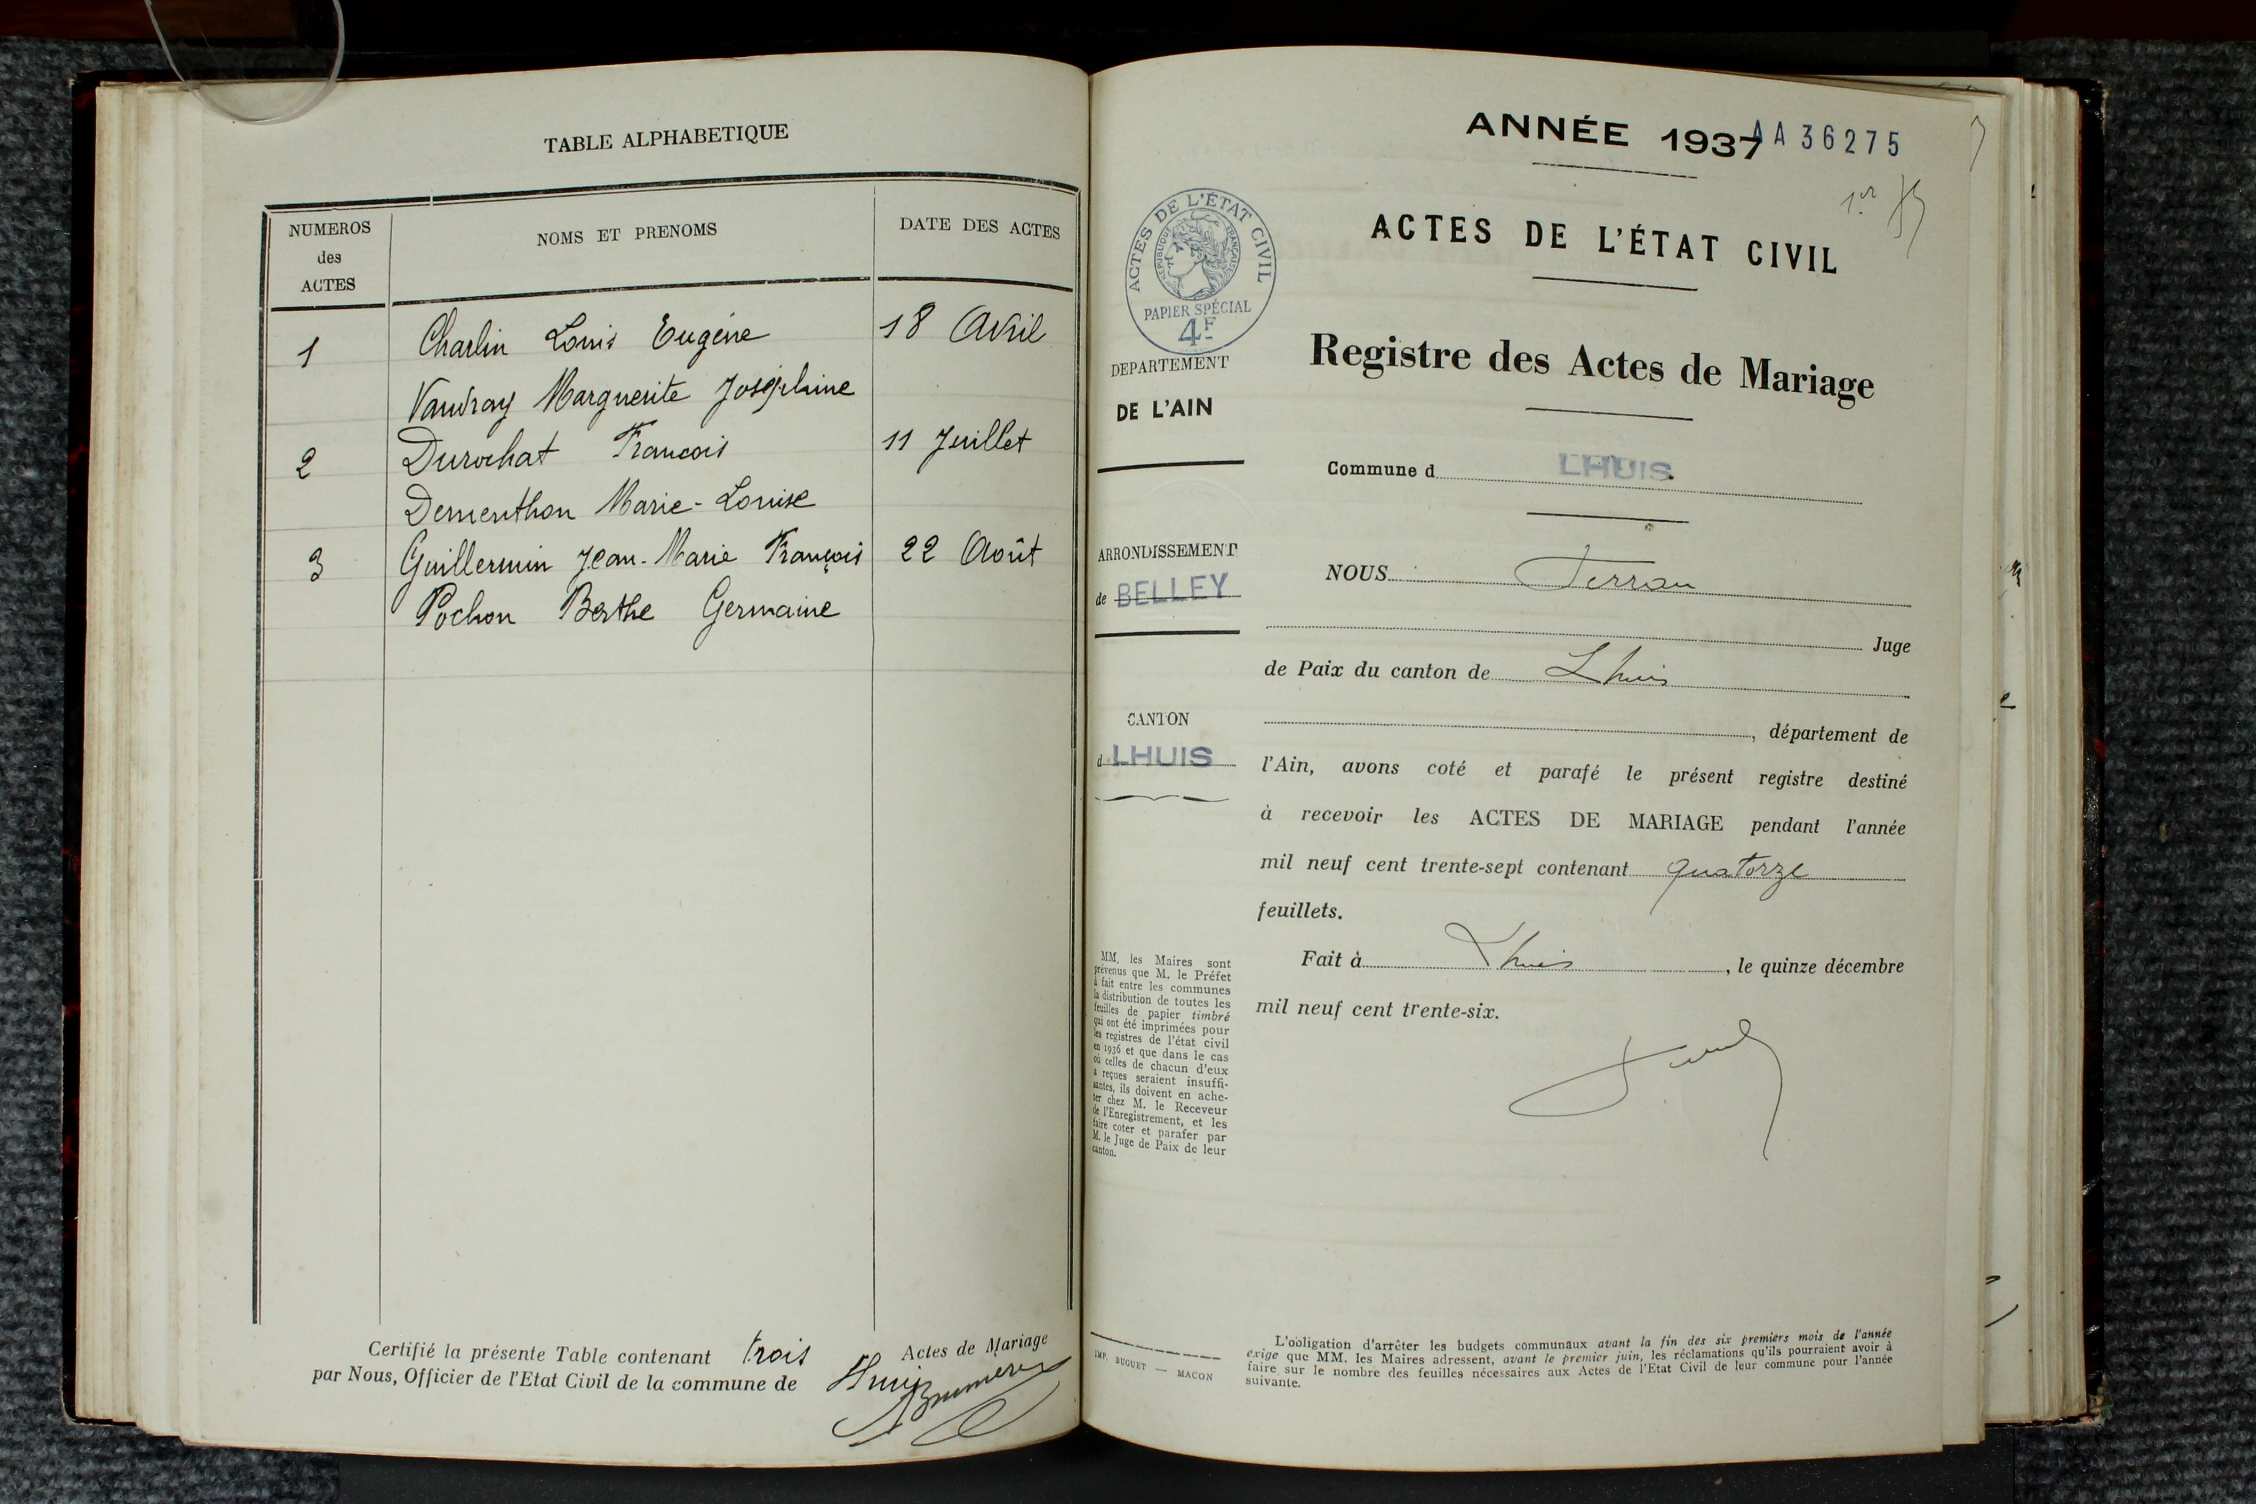 TABLE ALPHABETIQUE
NUMEROS
des
ACTES
NOMS ET PRENOMS
DATE DES ACTES
1 Charlin Louis Eugène 18 Avril
Vaudray Marguerite Joséphine
2 Durochat Francois 11 Juillet
Dementhon Marie-Louise
3 Guillermin Jean-Marie François 22 Août
Pochon Berthe Germaine
Certifié la présente Table contenant trois Actes de Mariage
par Nous, Officier de l'Etat Civil de la commune de Lhuis
ANNÉE 1937
AA 36275
1er
ACTES DE L'ÉTAT CIVIL
RÉPUBLIQUE FRANÇAISE
PAPIER SPÉCIAL
4F
DEPARTEMENT
DE L'AIN
ARRONDISSEMENT
de BELLEY
CANTON
d LHUIS
MM. les Maires sont
prévenus que M. le Préfet
a fait entre les communes
la distribution de toutes les
feuilles de papier timbré
qui ont été imprimées pour
les registres de l'état civil
en 1936 et que dans le cas
où celles de chacun d'eux
a reçues seraient insuffi-
santes, ils doivent en ache-
ter chez M. le Receveur
de l'Enregistrement, et les
faire coter et parafer par
M. le Juge de Paix de leur
canton.
IMP. BUGUET — MACON
ACTES DE L'ÉTAT CIVIL
Registre des Actes de Mariage
Commune d LHUIS
NOUS
Juge
de Paix du canton de Lhuis
, département de
l'Ain, avons coté et parafé le présent registre destiné
à recevoir les ACTES DE MARIAGE pendant l'année
mil neuf cent trente-sept contenant quatorze
feuillets.
Fait à Lhuis, le quinze décembre
mil neuf cent trente-six.
L'obligation d'arrêter les budgets communaux avant la fin des six premiers mois de l'année
exige que MM. les Maires adressent, avant le premier juin, les réclamations qu'ils pourraient avoir à
faire sur le nombre des feuilles nécessaires aux Actes de l'Etat Civil de leur commune pour l'année
suivante.